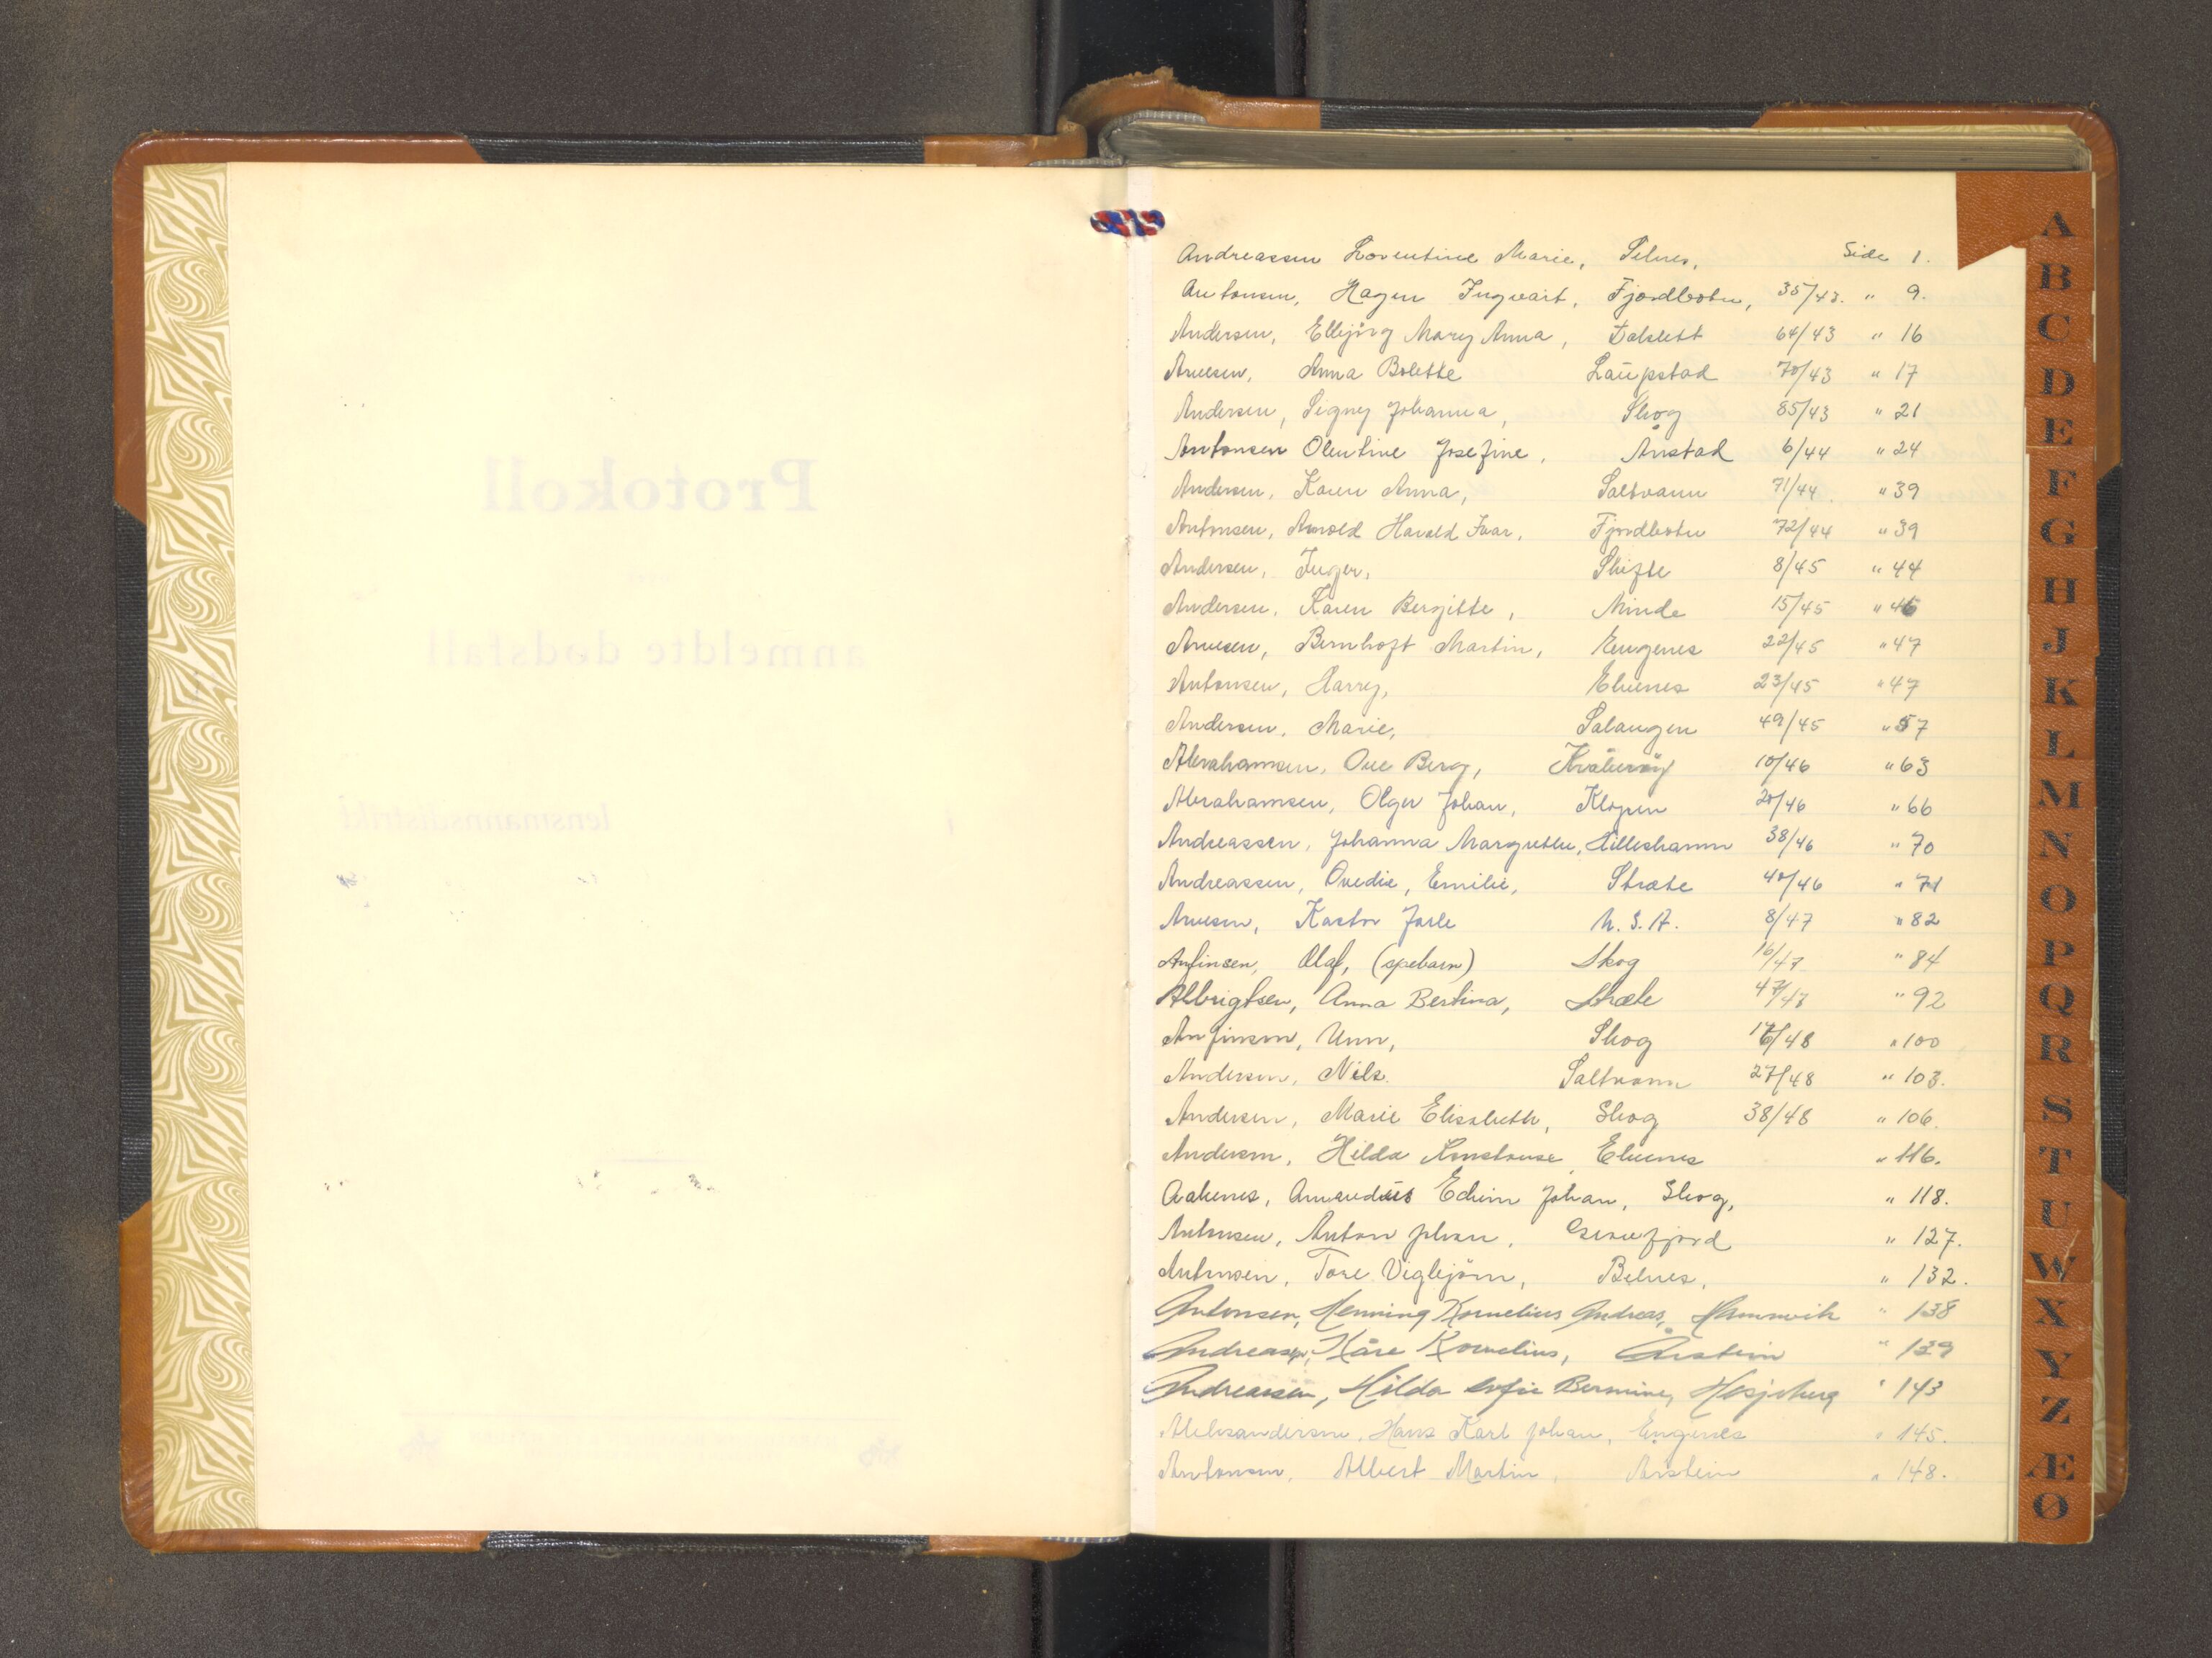 Protokoll
anmeldte dødsfall
lensmannsdistrikt
Andreassen Lorentine Marie, Selnes, Side 1.
Antonsen, Hagen Ingvart, Fjordbotn, 35/43. " 9.
Andersen, Ellbjørg Mary Anna, Dalslett 64/43 " 16
Arnesen, Anna Bolette Laupstad 70/43 " 17
Andersen, Signy Johanna, Skog 85/43 " 21
Antonsen Olentine Josefine, Årstad 6/44 " 24
Andersen, Karen Anna, Saltvann 71/44. " 39
Antonsen, Arnold Harald Ivar, Fjordbotn 72/44 " 39
Andersen, Inger, Skifte 8/45 " 44
Andersen, Karen Bergitte, Minde 15/45 " 46
Arnesen, Bernhoft Martin, Engenes 22/45 " 47
Antonsen, Harry, Elvenes 23/45 " 47
Andersen, Marie, Salangen 49/45 " 57
Abrahamsen, Ove Berg, 10/46 " 63
Abrahamsen, Olger Johan, Kløpen 20/46 " 66
Andreassen, Johanna Margrethe, Hilleshamn 38/46 " 70
Andreassen, Ovedie, Emilie, Stræte 40/46 " 71
Arnesen, Kastor Jarle U.S.A. 8/47 " 82
Anfinsen, Olaf, (spebarn) Skog 16/47 " 84
Albrigtsen, Anna Bertina, Stræte 47/47 " 92
Anfinsen, Unn, Skog 16/48 " 100
Andersen, Nils. Saltvann 27/48 " 103.
Andersen, Marie Elisabeth, Skog 38/48 " 106.
Andersen, Hilda Konstanse, Elvenes " 116.
Aakenes, Amandus Edvin Johan, Skog, " 118.
Antonsen, Anton Johan, Gravfjord " 127.
Antonsen, Tore Vigbjørn, Selnes, " 132.
Antonsen, Henning Kornelius Andreas, Hamnvik " 138
Andreassen, Kåre Kornelius, Årstein " 139
Andreassen, Hilda Sofie Bermine, Hesjeberg " 143
Aleksandersen, Hans Karl Johan, Engenes " 145.
Antonsen, Albert Martin, Årstein " 148.
A
B
C
D
E
F
G
H
J
K
L
M
N
O
P
Q
R
S
T
U
W
X
Y
Z
Æ
Ø